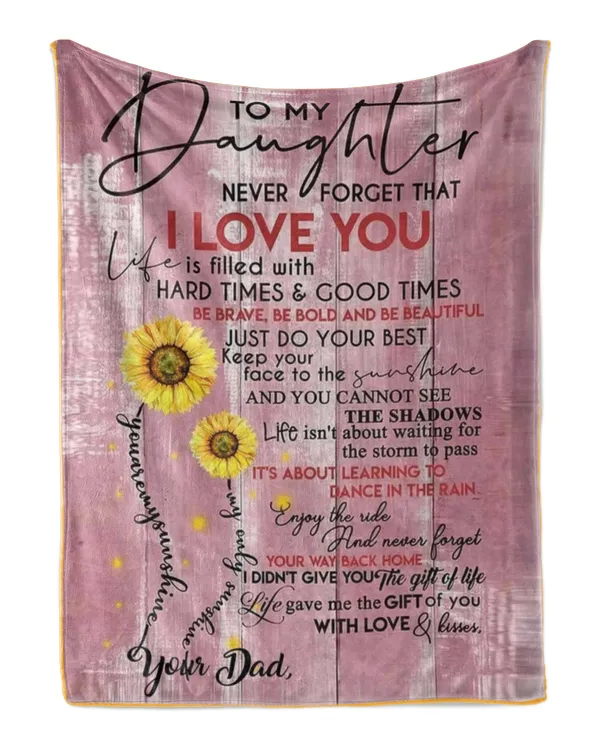 TO MY
Daughter
NEVER FORGET THAT
I LOVE YOU
Life is filled with
HARD TIMES & GOOD TIMES
BE BRAVE, BE BOLD AND BE BEAUTIFUL
JUST DO YOUR BEST
Keep your
face to the sunshine
AND YOU CANNOT SEE
THE SHADOWS
Life isn't about waiting for
the storm to pass
IT'S ABOUT LEARNING TO
DANCE IN THE RAIN.
Enjoy the ride
And never forget
YOUR WAY BACK HOME
I DIDN'T GIVE YOU The gift of life
Life gave me the GIFT of you
WITH LOVE & kisses,
youaremysunshine
my only sunshine
Your Dad,